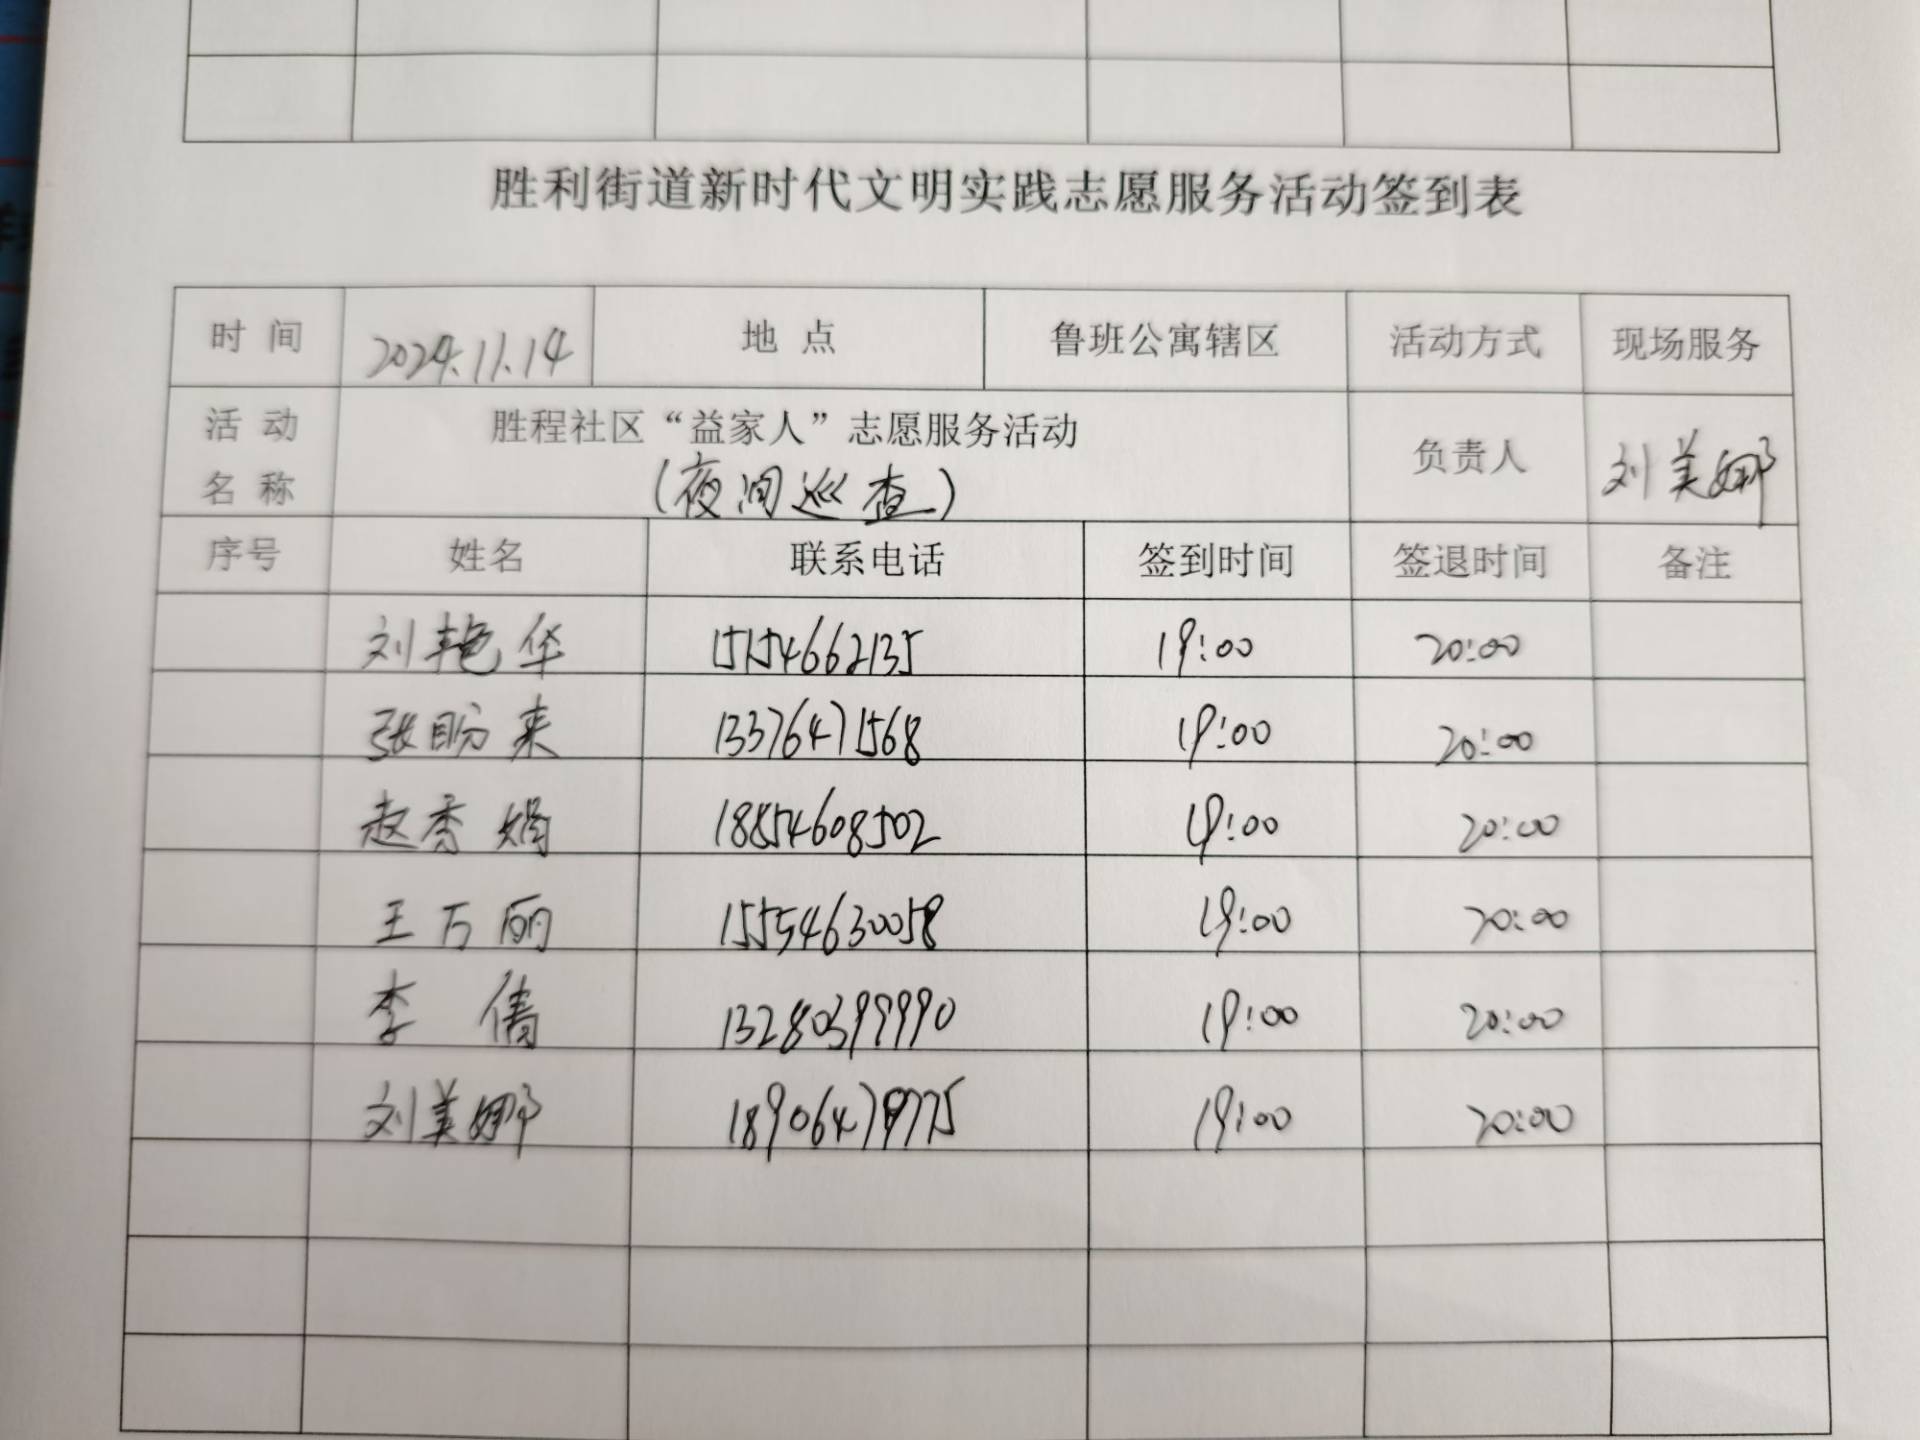 胜利街道新时代文明实践志愿服务活动签到表
时 间 2024.11.14 地 点 鲁班公寓辖区 活动方式 现场服务
活 动 名 称 胜程社区“益家人”志愿服务活动 负责人 刘美娜
(夜间巡查)
序号 姓名 联系电话 签到时间 签退时间 备注
刘艳华 15154662135 19:00 20:00
张盼来 13376471568 19:00 20:00
赵秀娟 18854608502 19:00 20:00
王万丽 15554630058 19:00 20:00
李倩 13280399990 19:00 20:00
刘美娜 18906479775 19:00 20:00